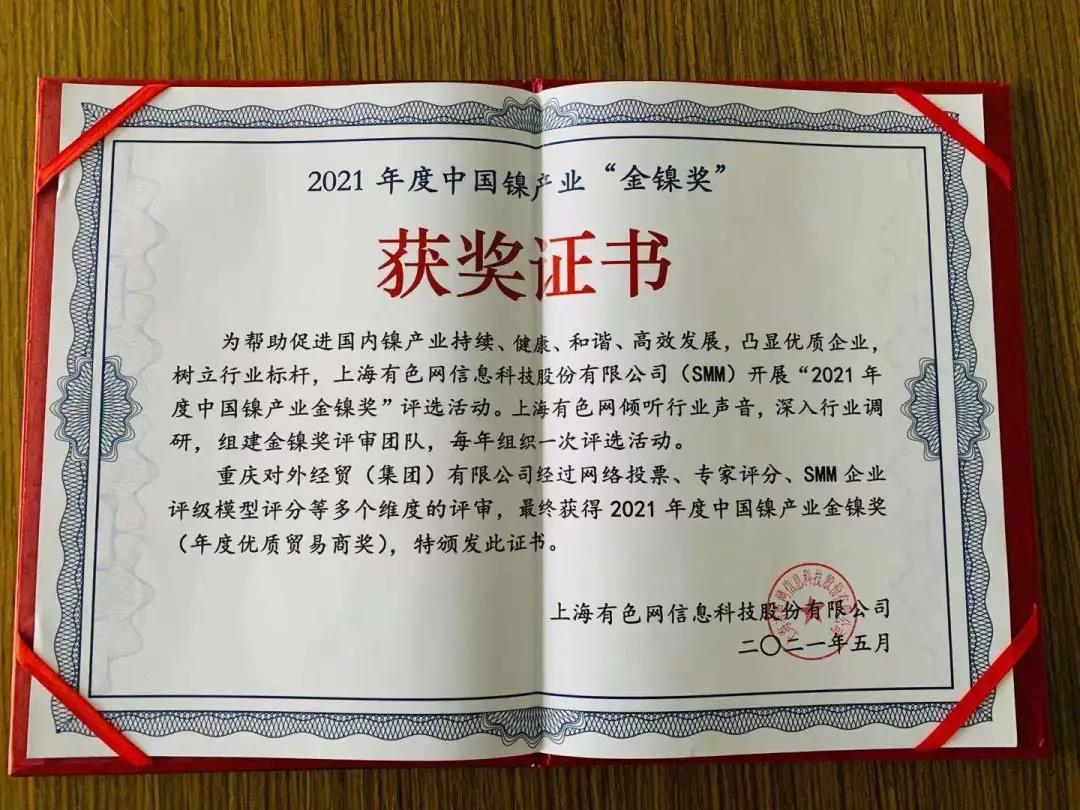 2021 年度中国镍产业“金镍奖”
获奖证书
为帮助促进国内镍产业持续、健康、和谐、高效发展，凸显优质企业，
树立行业标杆，上海有色网信息科技股份有限公司（SMM）开展“2021 年
度中国镍产业金镍奖”评选活动。上海有色网倾听行业声音，深入行业调
研，组建金镍奖评审团队，每年组织一次评选活动。
重庆对外经贸（集团）有限公司经过网络投票、专家评分、SMM 企业
评级模型评分等多个维度的评审，最终获得 2021 年度中国镍产业金镍奖
（年度优质贸易商奖），特颁发此证书。
上海有色网信息科技股份有限公司
二〇二一年五月
上海有色网信息科技股份有限公司